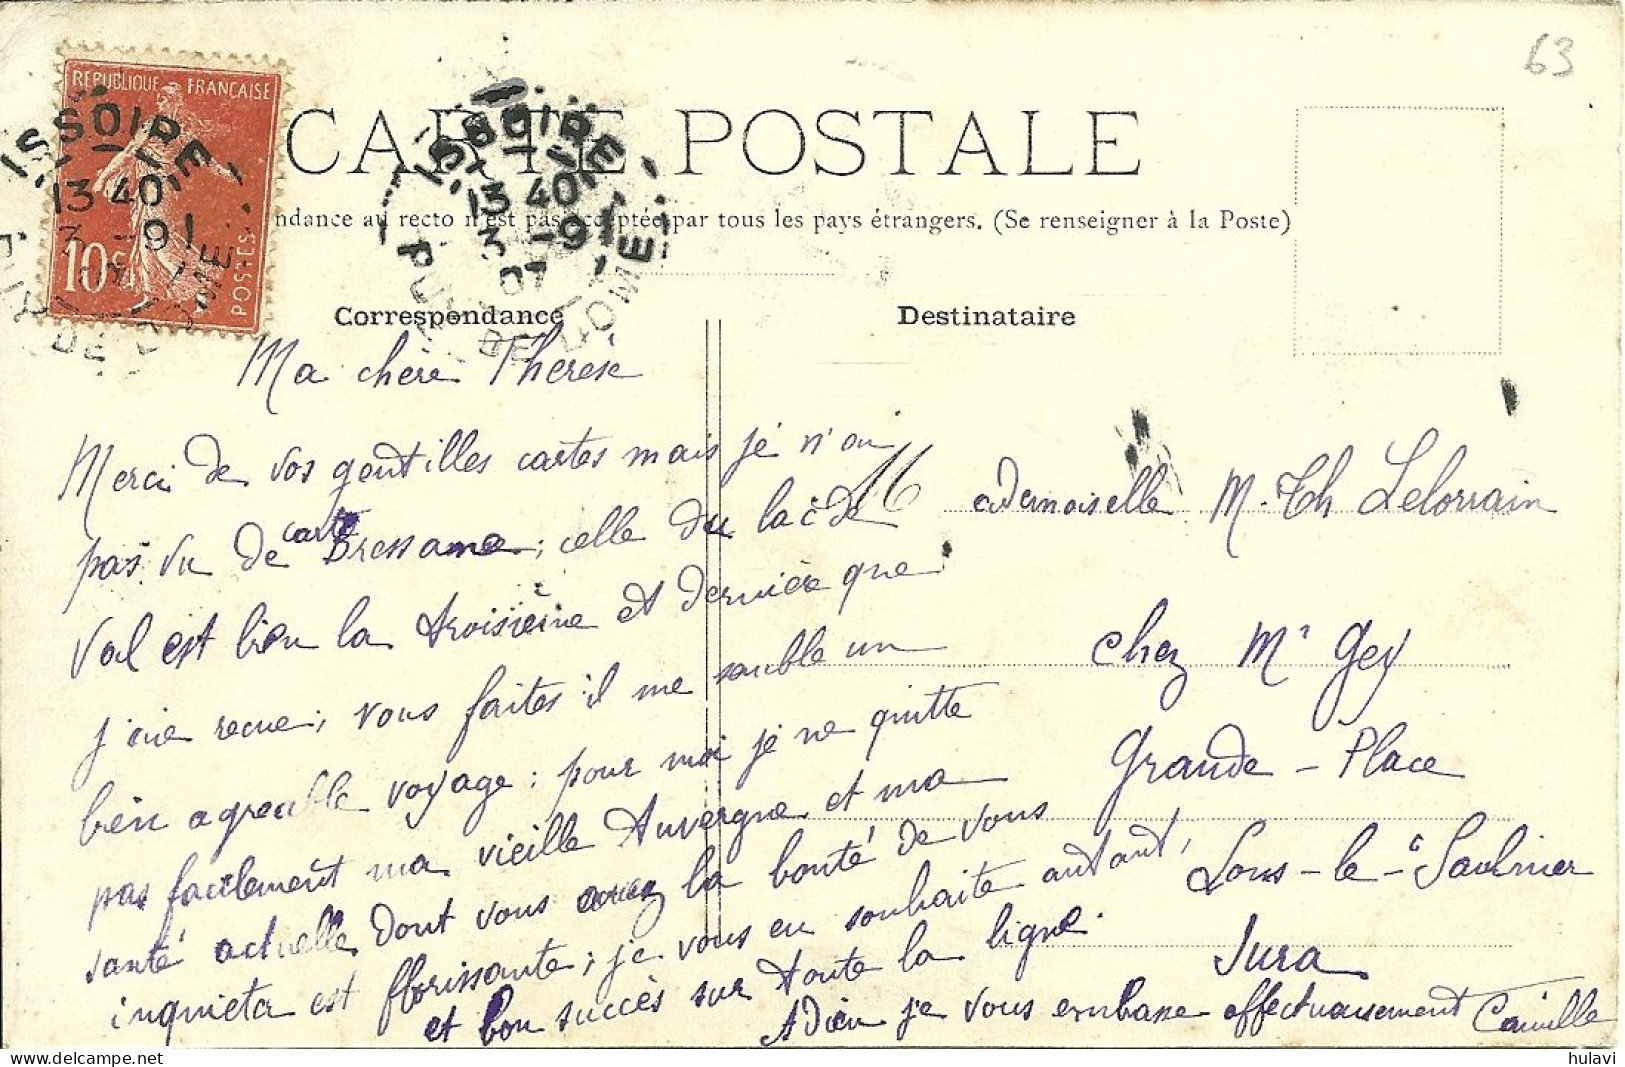 63
RÉPUBLIQUE FRANÇAISE
10c
POSTES
ISSOIRE
13 40
3 -9
PUY DE DOME
CARTE POSTALE
ISSOIRE
13 40
3 -9
07
PUY DE DOME
ndance au recto n'est pas acceptée par tous les pays étrangers. (Se renseigner à la Poste)
Correspondance
Destinataire
Ma chère Thérèse
Merci de vos gentilles cartes mais je n'ai
pas vu de carte Bressane; celle du lac de
Val est bien la troisième et dernière que
j'aie reçue; vous faites il me semble un
bien agréable voyage: pour moi je ne quitte
pas facilement ma vieille Auvergne et ma
santé actuelle dont vous avez la bonté de vous
inquiéter est florissante; je vous en souhaite autant,
et bon succès sur toute la ligne.
Adieu je vous embrasse affectueusement Camille
Mademoiselle M. Th Lelorrain
Chez Mr Gey
Grande-Place
Lons-le-Saulnier
Jura
hulavi